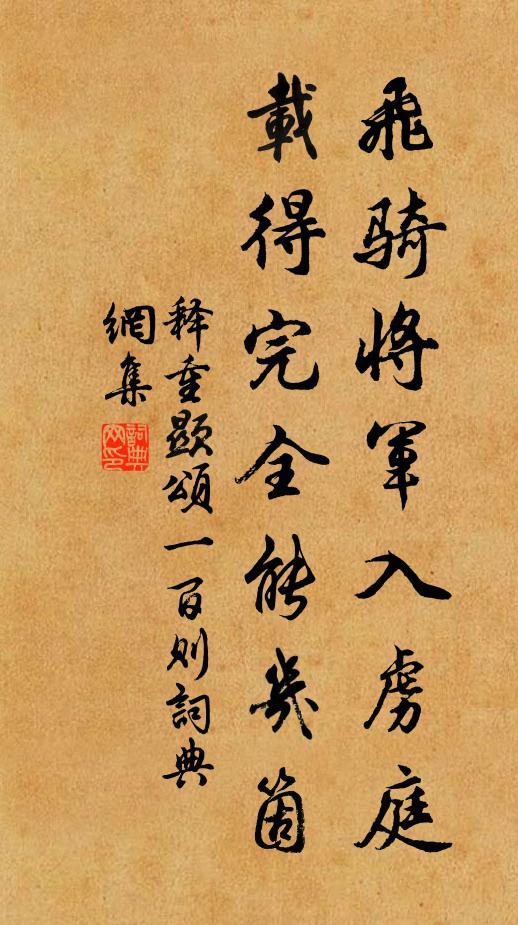 飛騎將軍入虜庭
載得完全能幾箇
释重顯頌一百則詞典
網集
詞典
网印